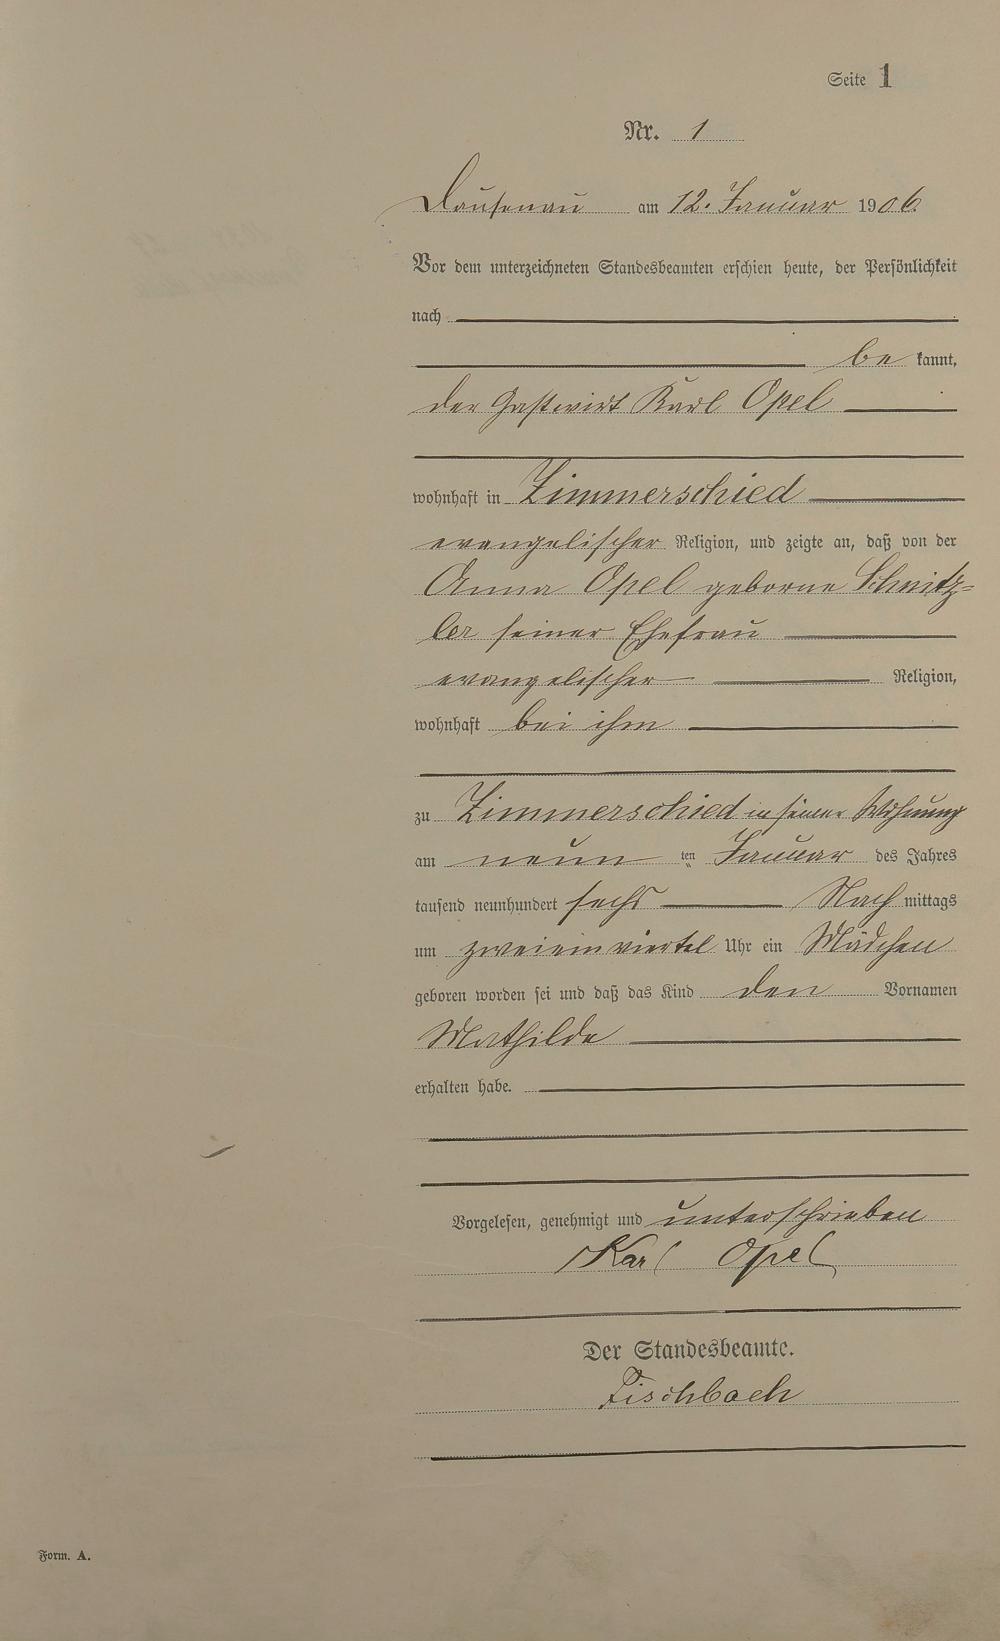 Seite 1
Nr. 1
Dausenau am 12. Januar 1906.
Vor dem unterzeichneten Standesbeamten erschien heute, der Persönlichkeit
nach
be kannt,
der Gastwirt Karl Opel
wohnhaft in Zimmerschied
evangelischer Religion, und zeigte an, daß von der
Anna Opel geborne Schnitz=
ler seiner Ehefrau
evangelischer Religion,
wohnhaft bei ihm
zu Zimmerschied in seiner Wohnung
am neun ten Januar des Jahres
tausend neunhundert sechs Nach mittags
um zweieinviertel Uhr ein Mädchen
geboren worden sei und daß das Kind den Vornamen
Mathilde
erhalten habe.
Vorgelesen, genehmigt und unterschrieben
Karl Opel
Der Standesbeamte.
Fischbach
Form. A.